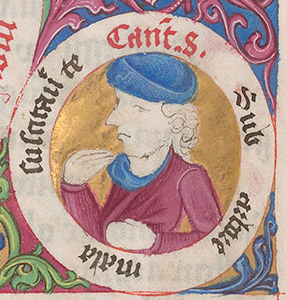 Cant. 8.
Sub arbore malo suscitaui te